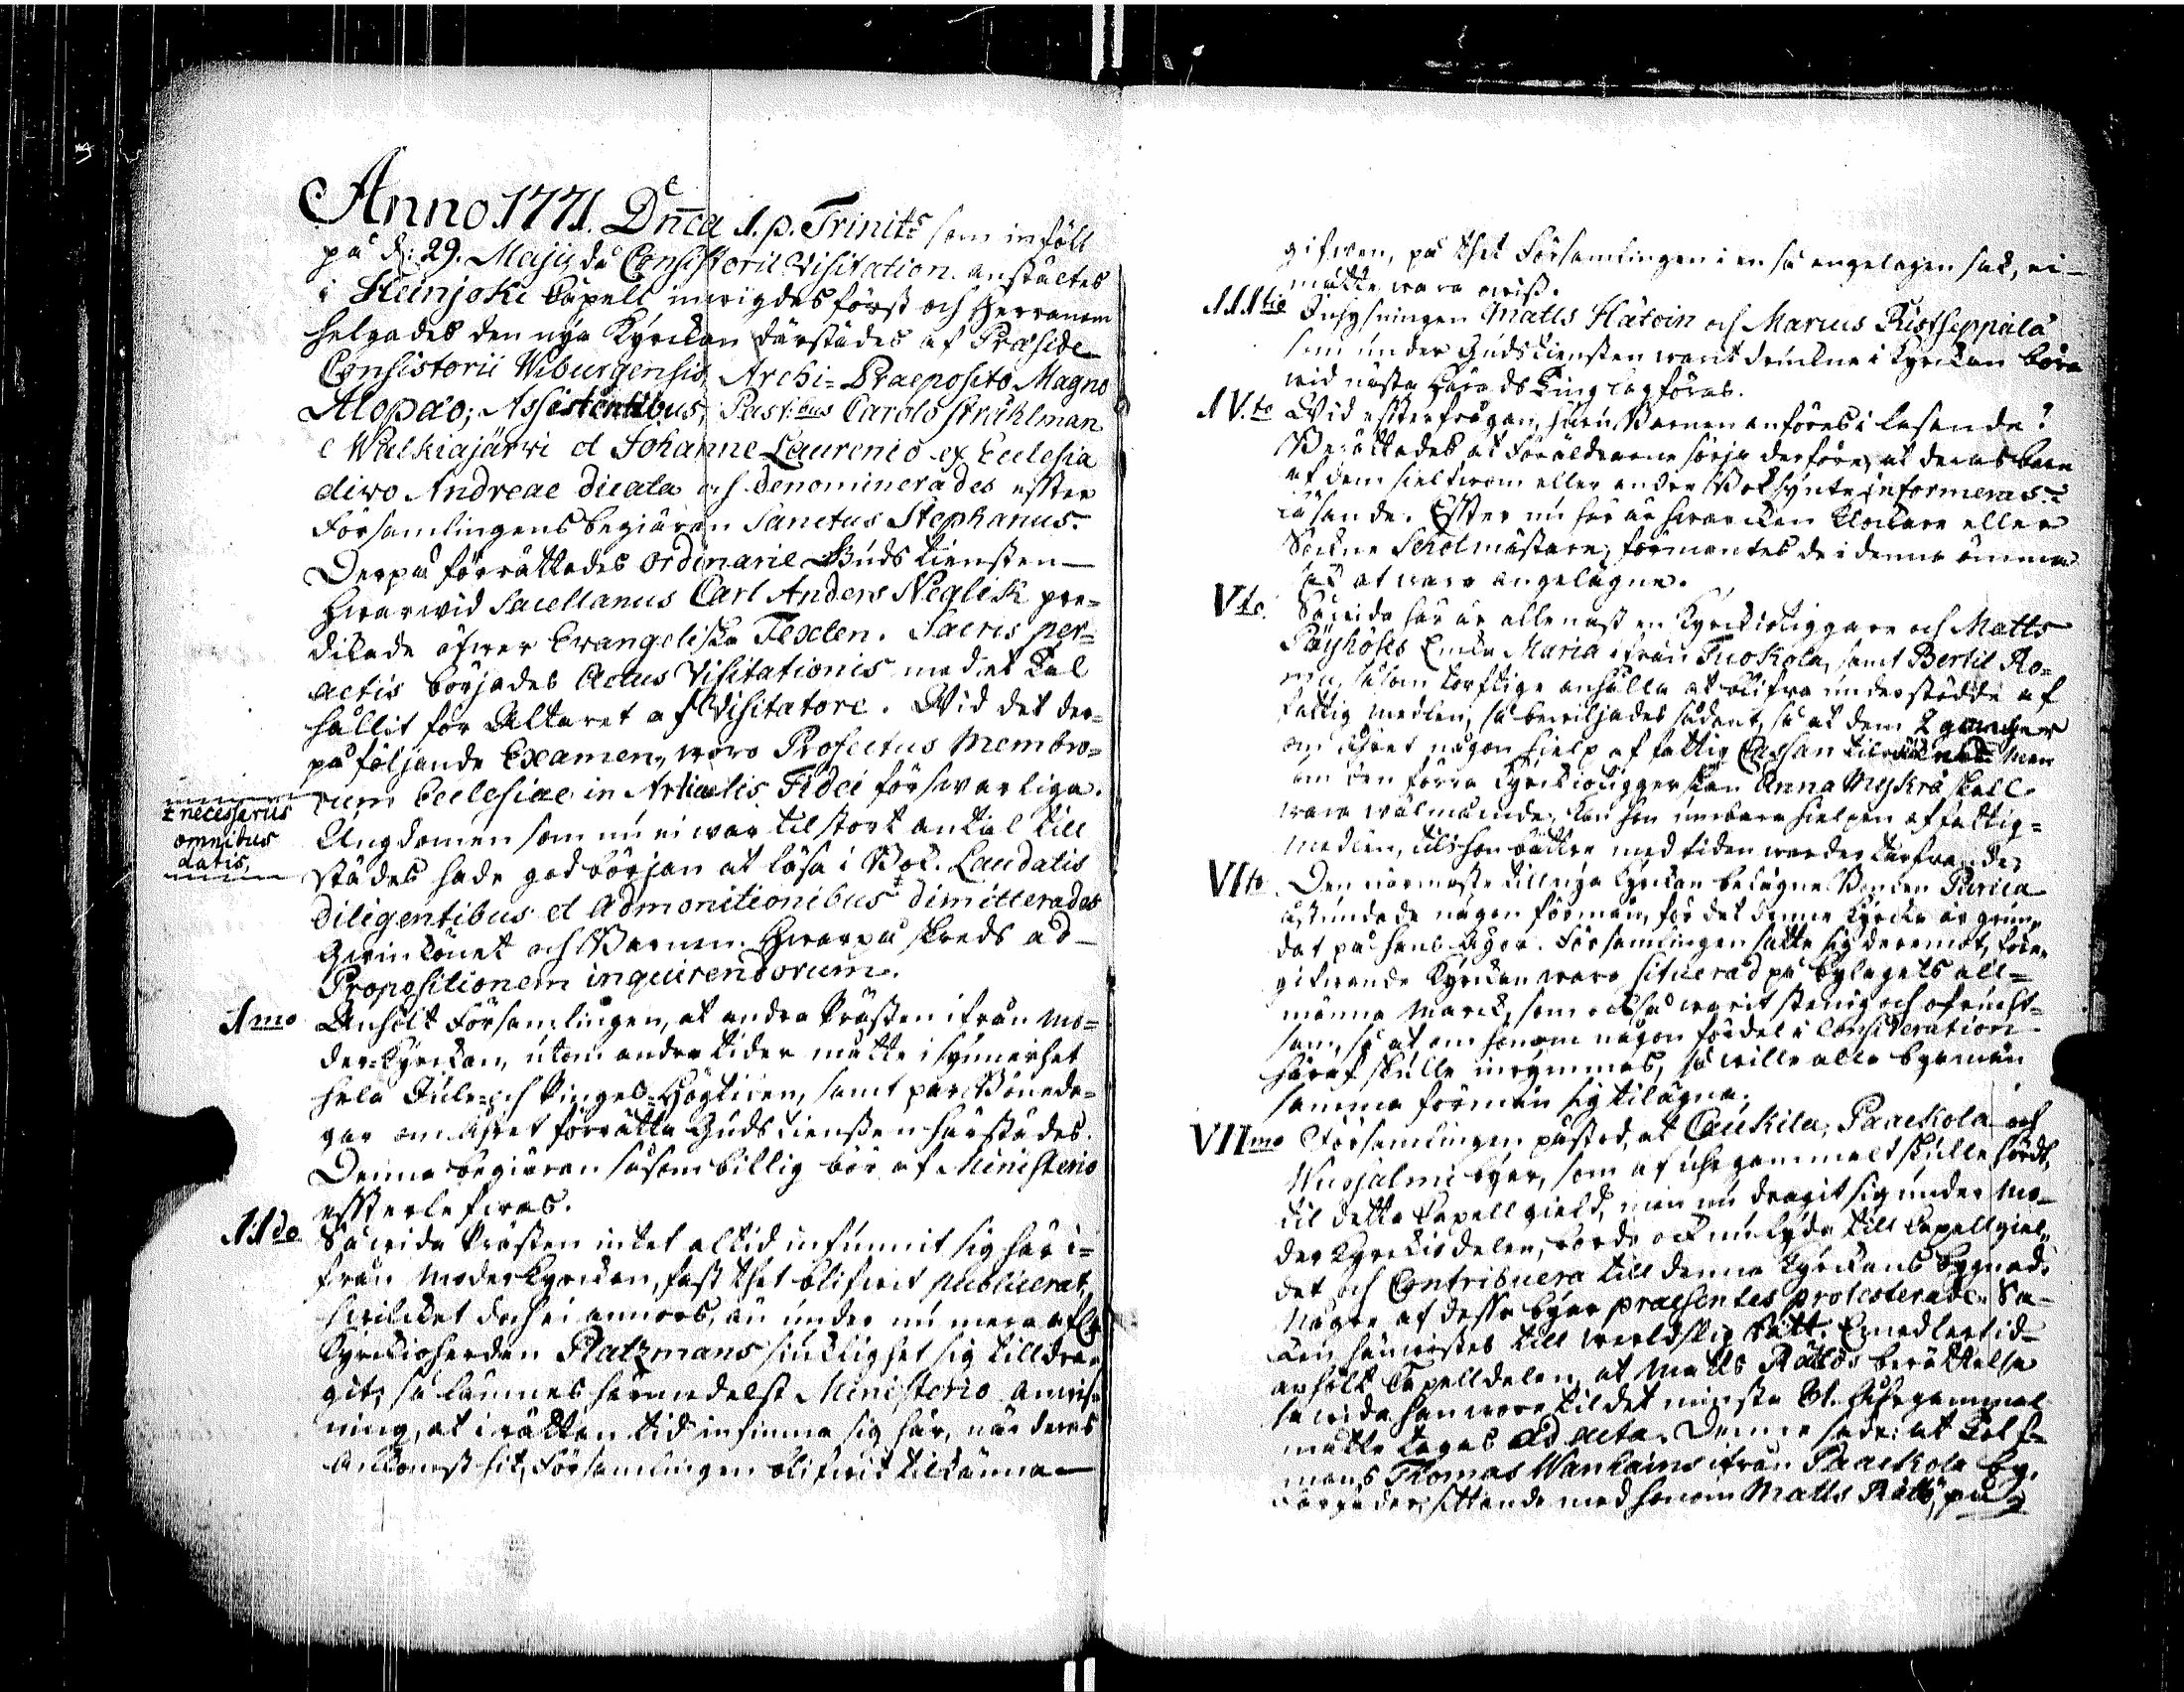 Anno 1771. Dnca 1. p. Trinit: som inföll
på d: 29. Maji, då Consistorii Visitation anstältes
i Heinjoki Capell inwigdes först och Herranom
helgades den nya Kyrckan därstädes af Præside
Consistorii Wiburgensis, Archi-Praeposito Magno
Alopæo; Assistentibus, Past:ibus Carolo Stråhlman
e Walkiajärwi et Johanne Laurenio ex Ecclesia
divo Andreae dicata och denominerades efter
Församlingens begiäran Sanctus Stephanus.
Derpå förrättades ordinarie Gudstiensten
Hwarwid Sacellanus Carl Anders Neglik pre-
dikade öfwer Evangeliska Texten. Sacris per-
actis börjades Actus Visitationis med et tal
hållit för Altaret af Visitatore. Wid det der-
på följande Examen, woro Profectus Membro-
rum Ecclesiae in Articulis Fidei försvarliga.
Ungdomen som nu ei war til stort antal till
städes hade god början at läsa i Bok. Laudatis
diligentibus et admonitionibus ‡ dimitterades
‡ necessariis
omnibus
datis.
Qwinkönet och Barnen. Hwarpå skreds ad
Propositionem inquirendorum.
I mo Anhölt Församlingen, at andra Prästen ifrån Mo-
der-Kyrckan, utom andra tider måtte i synnerhet
hela Jule- och Pingst-Högtiden, samt par Böneda-
gar om Åhret förrätta Gudstiensten härstädes.
Denna begiäran såsom billig bör af Ministerio
efterlefwas.
II do Såwida Prästen intet altid infunnit sig här i-
från Moderkyrckan, fast thet blifwit publicerat,
hwilcket doch ei annors, än under nu mera afl.
Kyrckioherden Platzmans siuklighet sig tilldra-
git; så lämnes härmedelst Ministerio anwis-
ning, at i rättan tid infinna sig här, när deras
Ankomst hit, Församlingen blifwit tilkänna
gifwen, på thet Församlingen i en så angelägen sak, ei
måtte wara owiss.
III tio Inhysningen Matts Hätöin och Marcus Ristseppälä
som under Gudstiensten warit druckne i Kyrckan böra
wid nästa Häradsting lagföras.
IV. to Wid efterfrågan, huru Barnen anföres i läsande?
Berättades at Föräldrarne sörja derföre, at deras barn
af dem sielfwom eller andre Boksynte informeras i
läsande. Efter nu här är hwarcken Klockare eller
Sockne Scholmästare, förmantes de i denne ömma
sak at wara angelägne.
V to. Såwida här är allenast en Kyrckioliggare och Matts
Päyhöses Encka Maria ifrån Tuokola, samt Bertil Ro-
mu, såsom torftige anhålla at blifwa understödde af
Fattig Medlen, så bewiljades sådant, så at dem 2 gånger
om Åhret någon hielp af fattig Cassan tildelas. Men
om den förra Kyrckioliggerskan Anna Myhrä skall
wara wälmående, kan hon umbära hielpen af fattig-
Medlen, tils hon bättre med tiden warder tarfwande.
VI to. Den närmaste till nya Kyrckan belägne Bonden Purica
åstundade någon förmån, för det denne Kyrcka är grun-
dat på hans Ägor. Församlingen satte sig deremot, före-
gifwande Kyrckan wara situerad på Bylagets all-
männa Marck, som också warit stenig och ofrucht-
sam, så at om honom någon fördel i Consideration
häraf skulle inrymmas, så wille alla byamän
samma förmån sig tilägna.
VII mo Församlingen påstod, at Caukila, Paackola och
Wuosalmi byar, som af ålder gammalt skulle hördt
til detta Capellgield, men nu dragit sig under Mo-
der Kyrckiodelen, borde ock nu lyda till Capellgiel-
det och Contribuera till denna Kyrckans bygnad.
Någre af desse byar praesentes protesterade. Sa-
ken hänwistes till werldslig Rätt. Emedlertid
anhölt Capelldelen, at Matts Rättös berättelse
såwida han wore til det minsta 81. Åhr gammal
måtte tagas ad acta. Denne sade: at Tolf-
mans Thomas Wankains ifrån Paackola by.
Förfäder, sittande med honom Matts Rättö, på